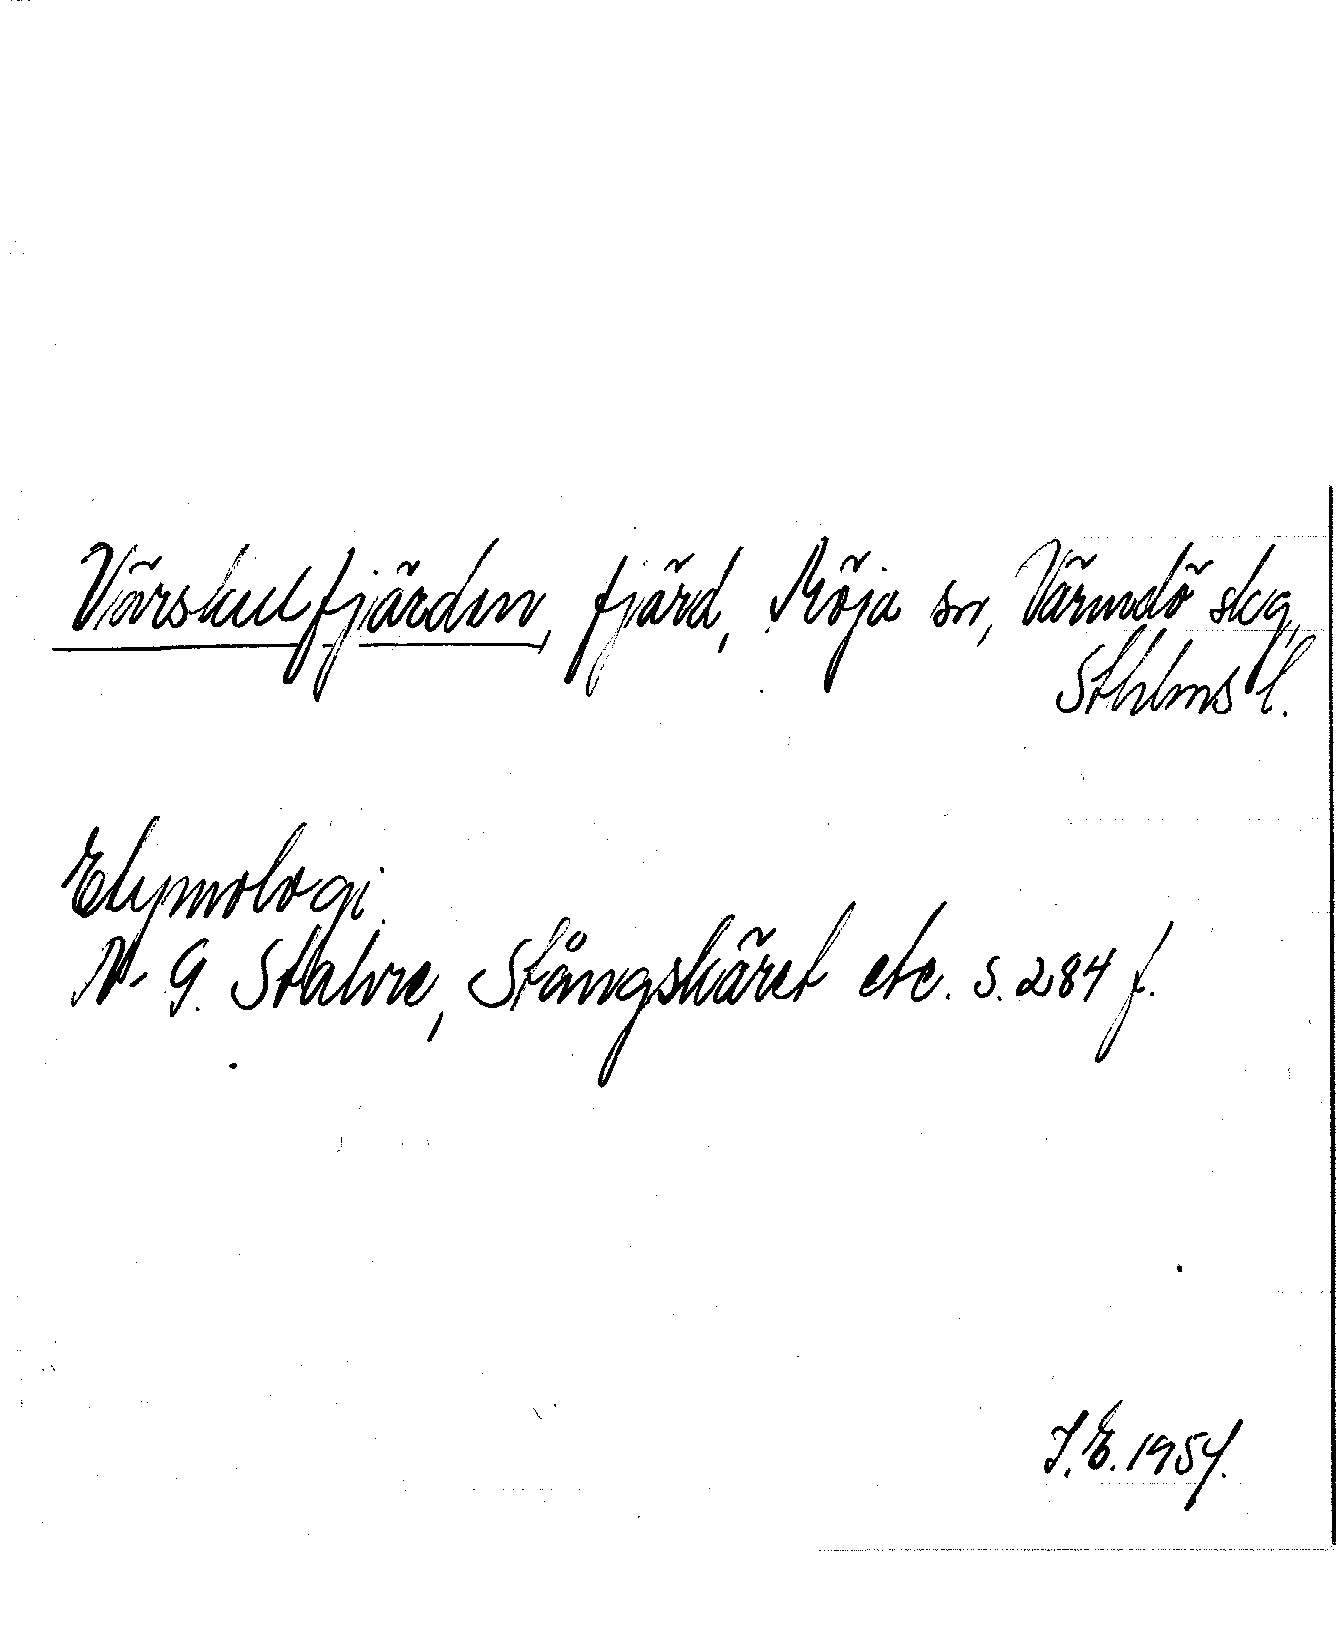 Värskulfjärden, fjärd, Möja sn, Värmdö skg,
Sthlms l.
Etymologi.
N-G. Stahre, Stångskäret etc. s. 284 f.
I.E. 1954.